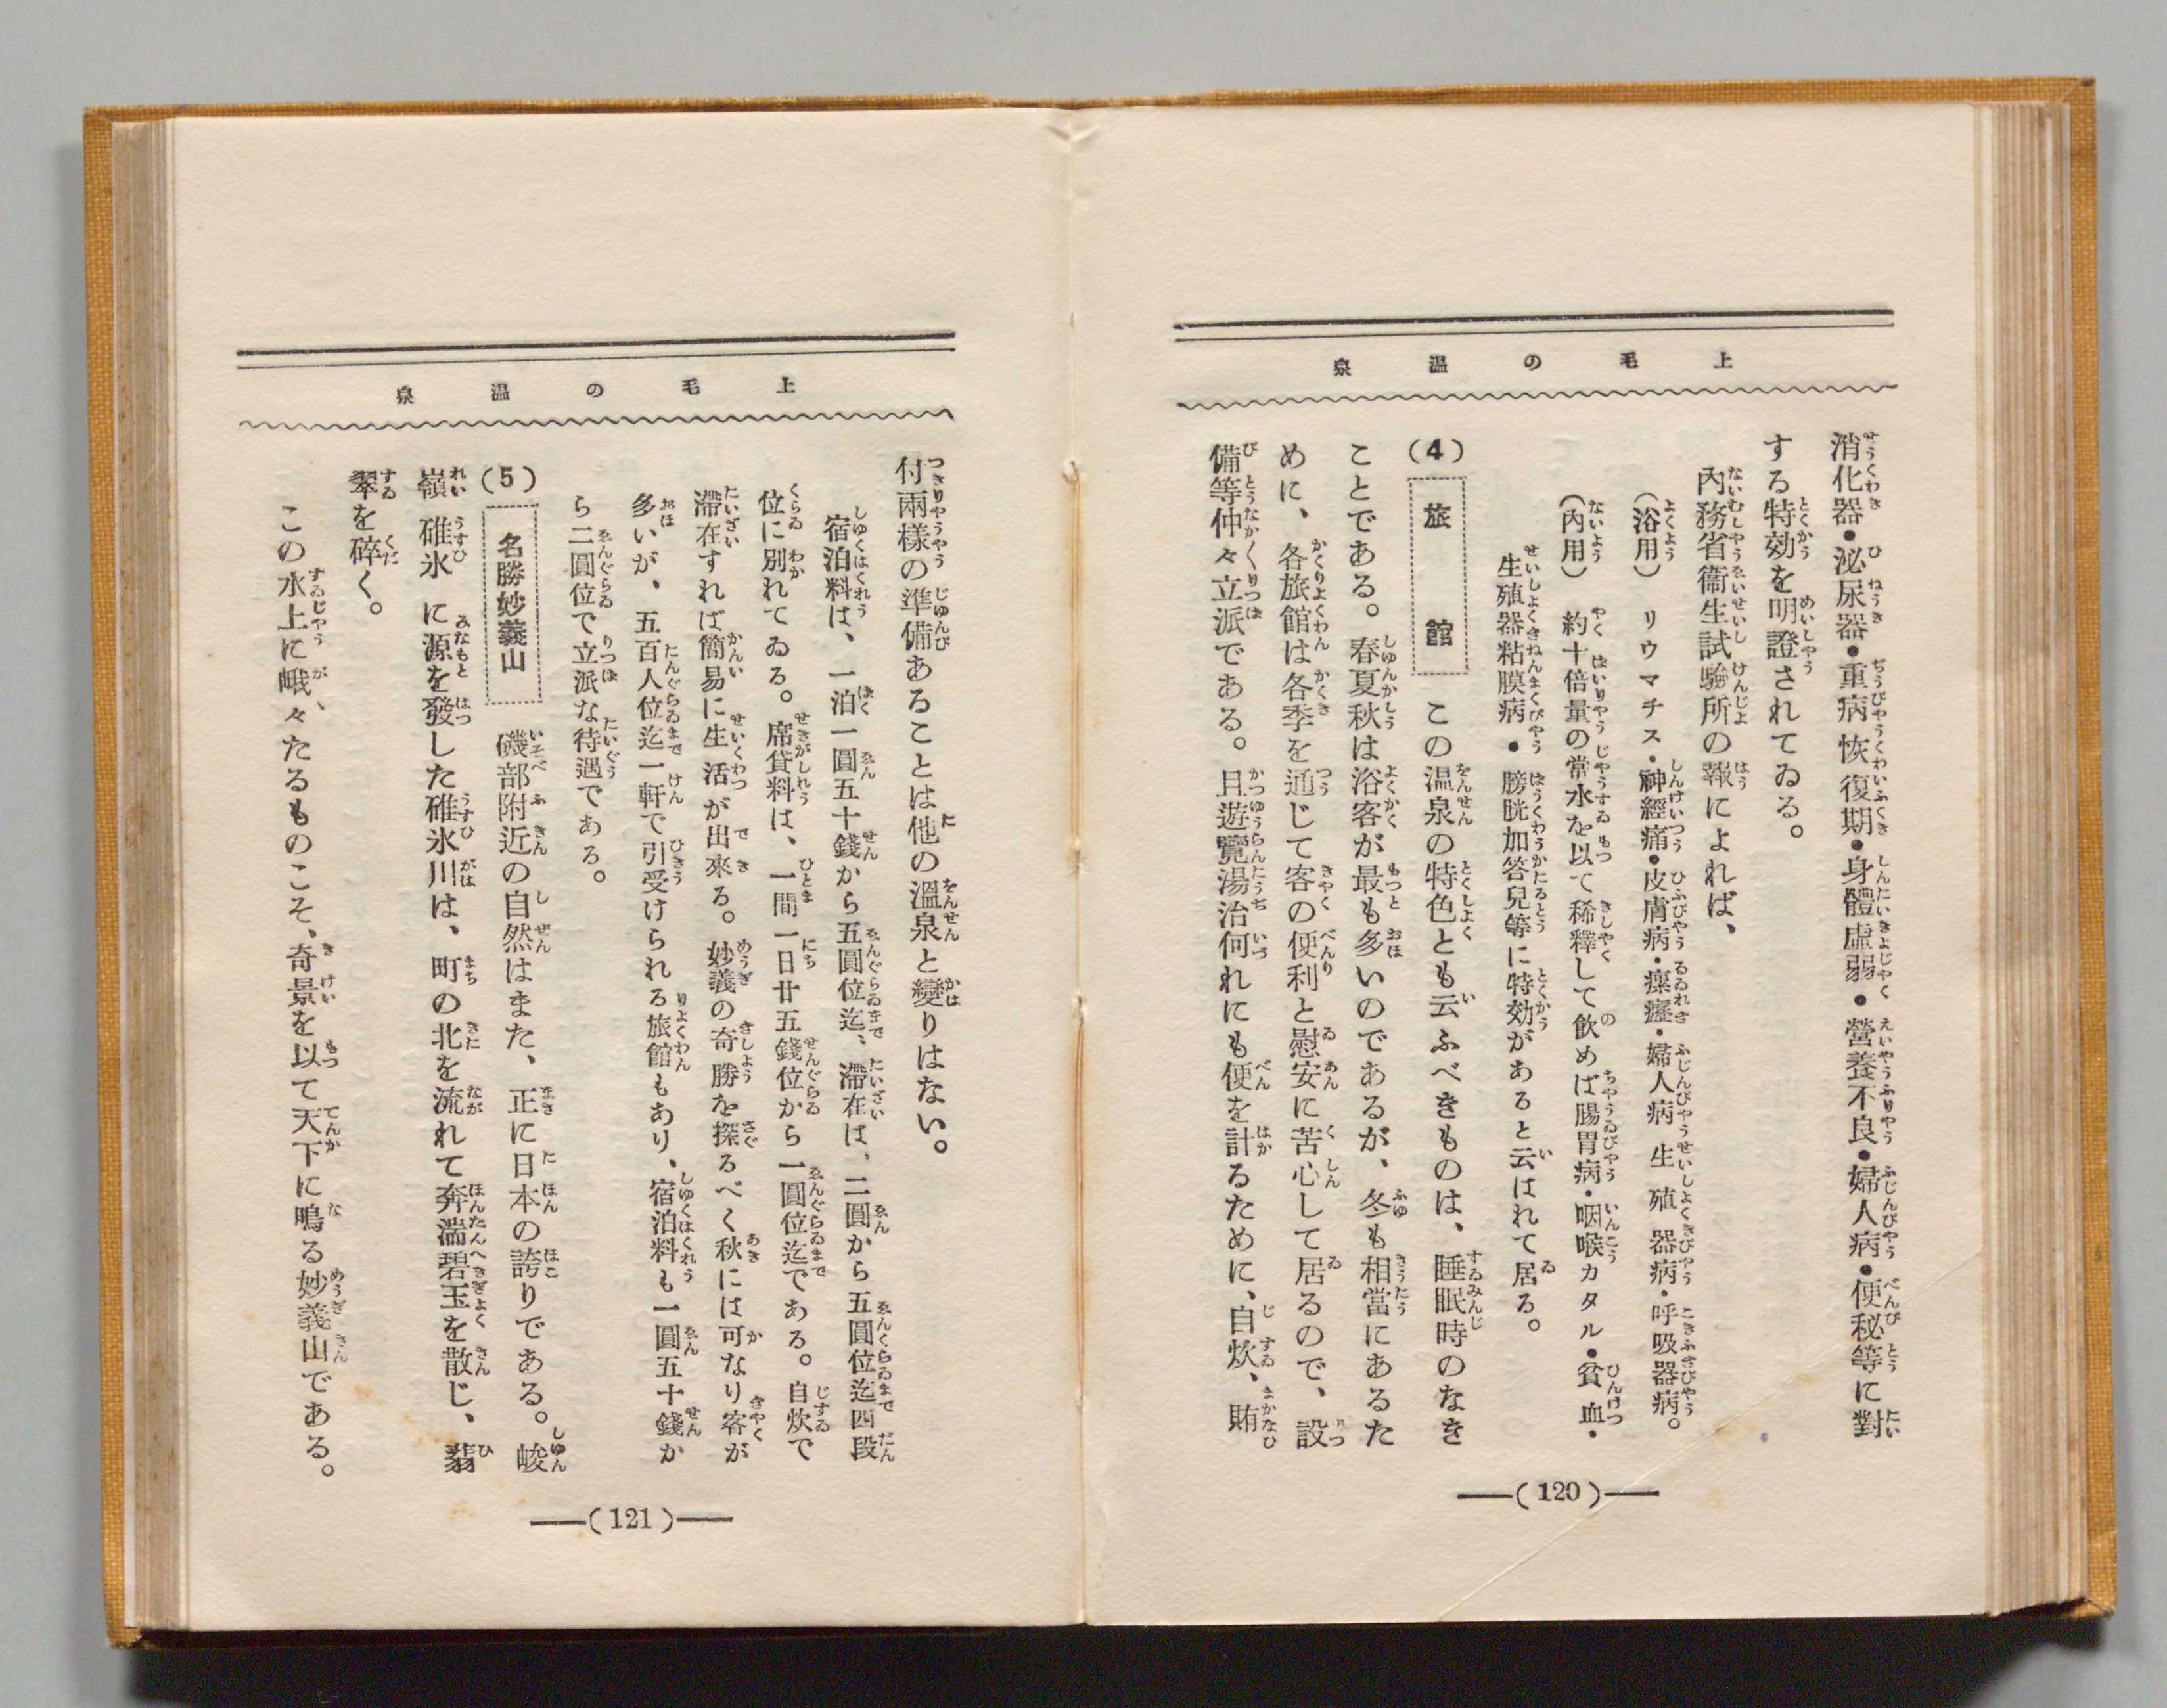 上毛の温泉
消化器・泌尿器・重病恢復期・身體虛弱・營養不良・婦人病・便秘等に對
する特効を明證されてゐる。
內務省衞生試驗所の報によれば、
（浴用）　リウマチス・神經痛・皮膚病・瘰癧・婦人病 生殖器病・呼吸器病。
（內用）　約十倍量の常水を以て稀釋して飮めば腸胃病・咽喉カタル・貧血・
生殖器粘膜病・膀胱加答兒等に特効があると云はれて居る。
(4) 旅館　この溫泉の特色とも云ふべきものは、睡眠時のなき
ことである。春夏秋は浴客が最も多いのであるが、冬も相當にあるた
めに、各旅館は各季を通じて客の便利と慰安に苦心して居るので、設
備等仲々立派である。且遊覽湯治何れにも便を計るために、自炊、賄
―(120)―
上毛の温泉
付兩樣の準備あることは他の溫泉と變りはない。
宿泊料は、一泊一圓五十錢から五圓位迄、滯在は、二圓から五圓位迄四段
位に別れてゐる。席貸料は、一間一日廿五錢位から一圓位迄である。自炊で
滯在すれば簡易に生活が出來る。妙義の奇勝を探るべく秋には可なり客が
多いが、五百人位迄一軒で引受けられる旅館もあり、宿泊料も一圓五十錢か
ら二圓位で立派な待遇である。
(5) 名勝妙義山　磯部附近の自然はまた、正に日本の誇りである。峻
嶺 碓氷 に源を發した碓氷川は、町の北を流れて奔湍碧玉を散じ、翡
翠を碎く。
この水上に峨、々たるものこそ、奇景を以て天下に鳴る妙義山である。
―(121)―